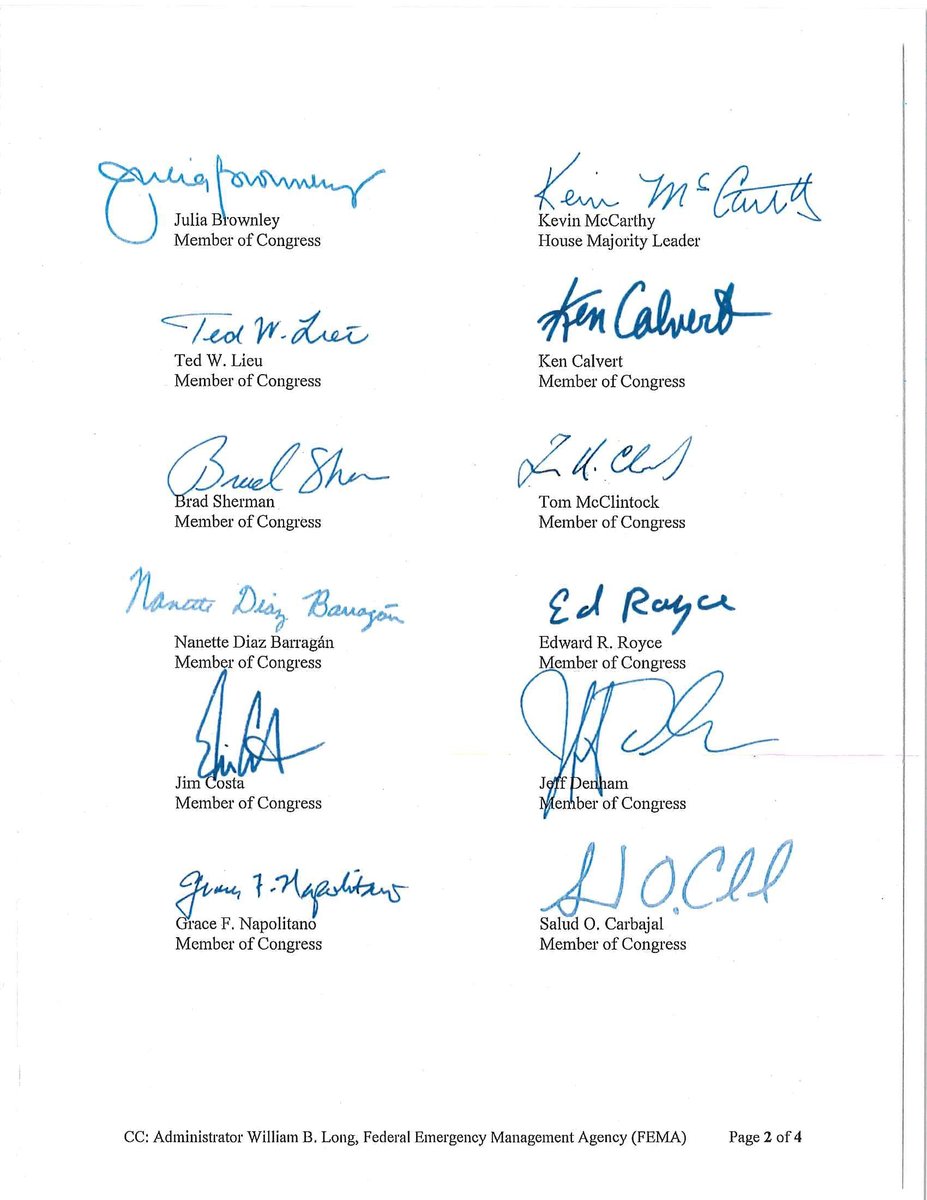 Julia Brownley Kevin McCarthy
Julia Brownley Kevin McCarthy
Member of Congress House Majority Leader
Ted W. Lieu Ken Calvert
Ted W. Lieu Ken Calvert
Member of Congress Member of Congress
Brad Sherman
Brad Sherman Tom McClintock
Member of Congress Member of Congress
Nanette Diaz Barragán Ed Royce
Nanette Diaz Barragán Edward R. Royce
Member of Congress Member of Congress
Jim Costa Jeff Denham
Member of Congress Member of Congress
Grace F. Napolitano
Grace F. Napolitano Salud O. Carbajal
Member of Congress Member of Congress
CC: Administrator William B. Long, Federal Emergency Management Agency (FEMA) Page 2 of 4